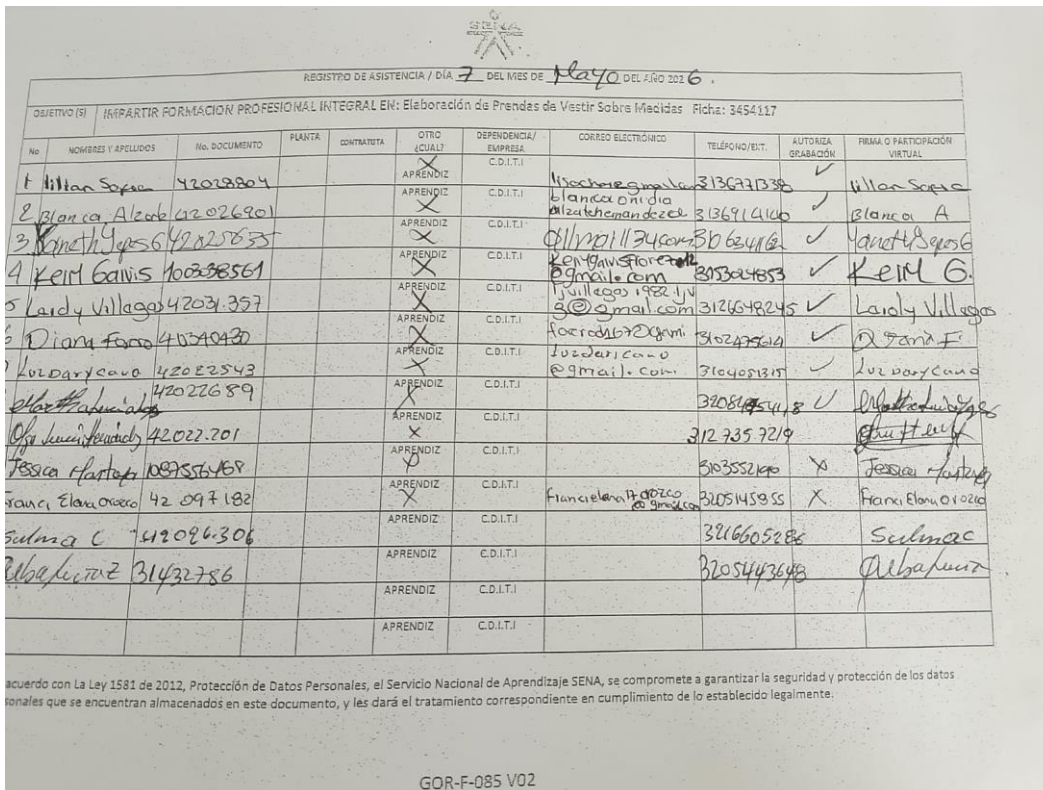 SENA
REGISTRO DE ASISTENCIA / DÍA 7 DEL MES DE Mayo DEL AÑO 2026.
OBJETIVO (S) IMPARTIR FORMACION PROFESIONAL INTEGRAL EN: Elaboración de Prendas de Vestir Sobre Medidas Ficha: 3454117
No NOMBRES Y APELLIDOS No. DOCUMENTO PLANTA CONTRATISTA OTRO ¿CUAL? DEPENDENCIA/ EMPRESA CORREO ELECTRÓNICO TELÉFONO/EXT. AUTORIZA GRABACIÓN FIRMA O PARTICIPACIÓN VIRTUAL
1 42028804 X APRENDIZ C.D.I.T.I 3136771338 ✓
2 Blanca Alzate 42026901 X APRENDIZ C.D.I.T.I blanca onidia ✓ Blanca A
3 X APRENDIZ C.D.I.T.I ✓
4 Keim Galvis 100338561 X APRENDIZ C.D.I.T.I @gmail.com 3053024853 ✓ Keim G.
5 Leidy Villegas 42031.357 X APRENDIZ C.D.I.T.I @gmail.com 3126648245 ✓ Leidy Villegas
Diana 40340430 X APRENDIZ C.D.I.T.I 3102475614 ✓ Diana F.
Luz Dary Cano 42022543 X APRENDIZ C.D.I.T.I luzdarycano @gmail.com 3104051315 ✓ Luz Dary Cano
42022689 X APRENDIZ C.D.I.T.I
42022.201 X APRENDIZ C.D.I.T.I 312 735.7219
Jessica 1087556468 APRENDIZ C.D.I.T.I 3103552190 X Jessica
Franci Elena Orozco 42 097182 X APRENDIZ C.D.I.T.I francielena17orozco @gmail.com 3205145955 X Franci Elena Orozco
Sulma C 42026.306 APRENDIZ C.D.I.T.I 3216605286 Sulma C
Alba Lucia Z 31432786 APRENDIZ C.D.I.T.I 3205443648 Alba Lucia
APRENDIZ C.D.I.T.I
APRENDIZ C.D.I.T.I
acuerdo con La Ley 1581 de 2012, Protección de Datos Personales, el Servicio Nacional de Aprendizaje SENA, se compromete a garantizar la seguridad y protección de los datos
sonales que se encuentran almacenados en este documento, y les dará el tratamiento correspondiente en cumplimiento de lo establecido legalmente.
GOR-F-085 V02